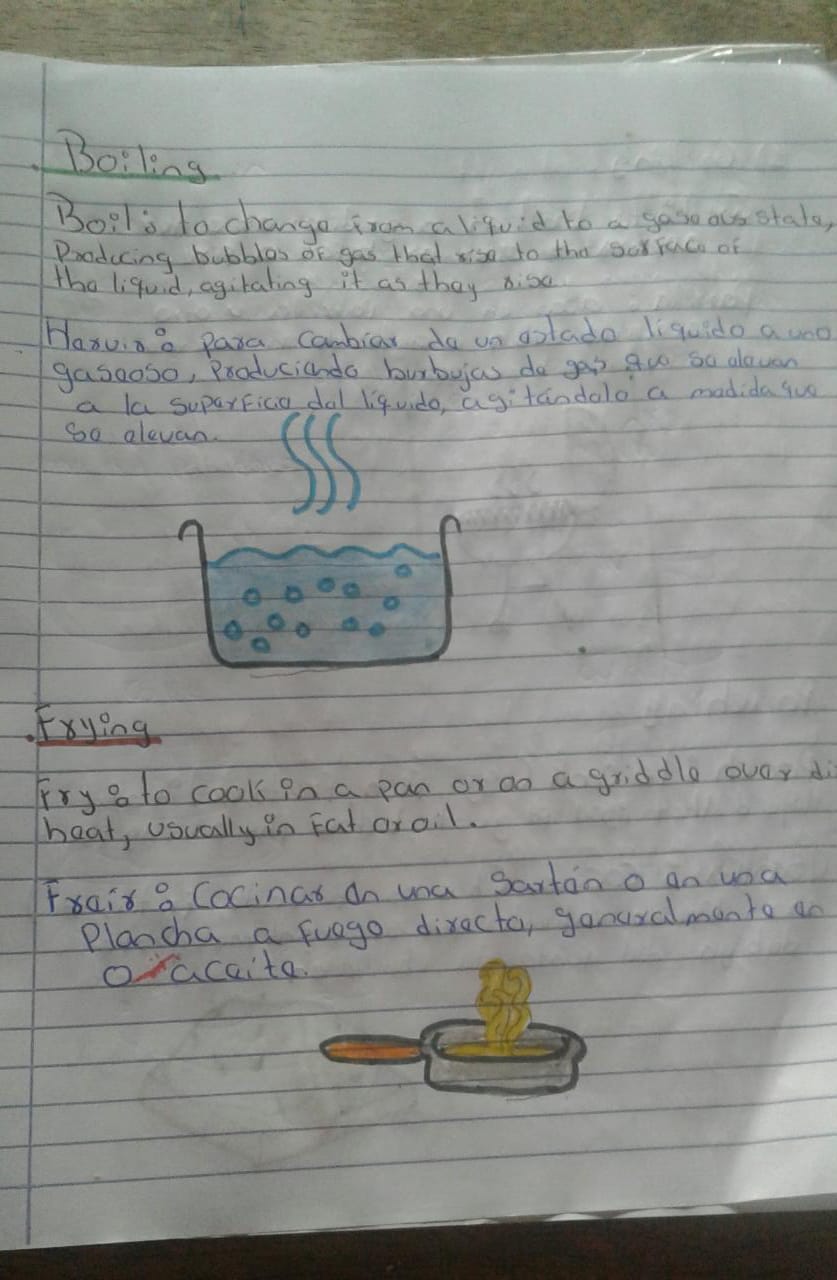 Boiling
Boil: to change from a liquid to a gaseous state,
Producing bubbles of gas that rise to the surface of
the liquid, agitating it as they rise
Hervir: para cambiar de un estado líquido a uno
gaseoso, Produciendo burbujas de gas que se elevan
a la superficie del líquido, agitándolo a medida que
se elevan.
Frying
Fry: to cook in a pan or on a griddle over di
heat, usually in fat or oil.
Freir: Cocinar en una Sartén o en una
Plancha a fuego directo, generalmente en
o aceite.